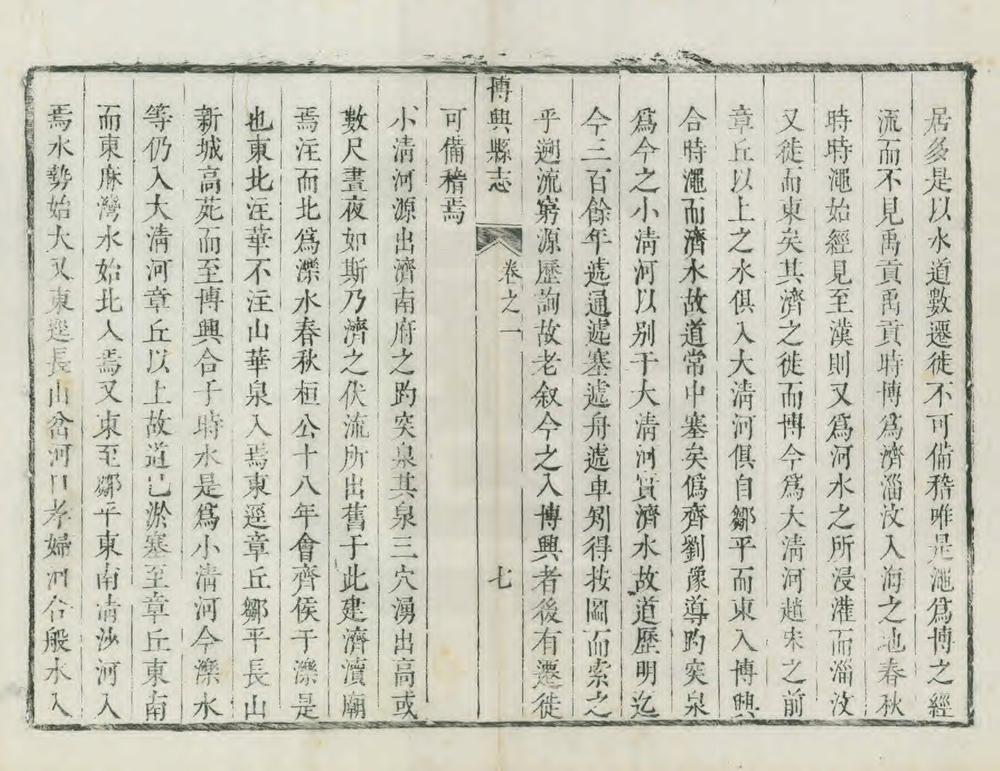 居多是以水道數遷徙不可備稽唯是澠爲博之經
流而不見禹貢禹貢時博爲濟淄汶入海之地春秋
時時澠始經見至漢則又爲河水之所浸灌而淄汶
又徙而東矣其濟之徙而博今爲大清河趙宋之前
章丘以上之水俱入大清河俱自鄒平而東入博興
合時澠而濟水故道常中塞矣僞齊劉豫導趵突泉
爲今之小清河以别于大清河實濟水故道歷明迄
今三百餘年遞通遞塞遞舟遞車矧得按圖而索之
乎遡流窮源歷詢故老叙今之入博興者後有遷徙
可備稽焉
博興縣志
卷之一
七
小清河源出濟南府之趵突泉其泉三穴湧出高或
數尺晝夜如斯乃濟之伏流所出舊于此建濟瀆廟
焉注而北爲濼水春秋桓公十八年會齊侯于濼是
也東北注華不注山華泉入焉東逕章丘鄒平長山
新城高苑而至博興合于時水是爲小清河今濼水
等仍入大清河章丘以上故道已淤塞至章丘東南
而東麻灣水始北入焉又東至鄒平東南清沙河入
焉水勢始大又東逕長山岔河口孝婦河合般水入